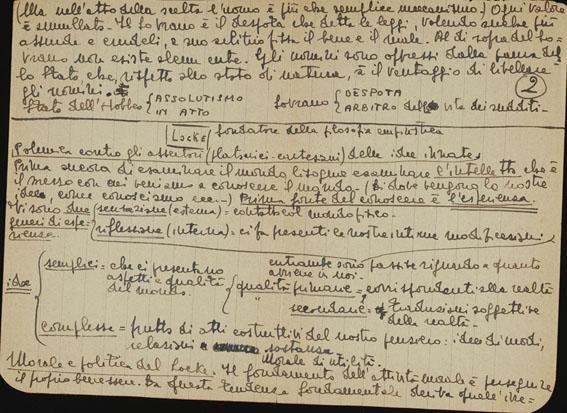 (Ma nell'atto della scelta l'uomo è più che semplice meccanismo.) Ogni valore
è annullato. Il sovrano è il despota che detta le leggi, volendo anche più
assurde e crudeli, e suo arbitrio fissa il bene e il male. Al di sopra del so-
vrano non esiste elemento. Gli uomini sono oppressi dalla paura del-
lo Stato, che, rispetto allo stato di natura, è il vantaggio di
gli uomini.
2
Stato dell'Hobbes { ASSOLUTISMO IN ATTO
Sovrano { DESPOTA ARBITRO della vita dei sudditi -
LOCKE / fondatore della filosofia empiristica
Polemica contro gli assertori (platonici-cartesiani) delle idee innate.
Prima ancora di esaminare il mondo bisogna esaminare l'intelletto che è
il mezzo con cui veniamo a conoscere il mondo. (Di dove vengono le nostre
idee, come conosciamo ecc..) Prima fonte del conoscere è l'esperienza.
Vi sono due generi di esperienza
sensazione (esterna) = contatto col mondo fisico.
riflessione (interna) = ci fa presenti le nostre interne modificazioni
entrambe sono passive riguardo a quanto
avviene in noi.
idee
semplici = che ci presentano
aspetti e qualità
del mondo.
qualità primarie = corrispondenti alla realtà
" secondarie = traduzioni soggettive
della realtà.
complesse = frutto di atti costruttivi del nostro pensiero: idee di modi,
relazioni e sostanza
Morale di utilità.
Morale e politica del Locke. Il fondamento dell'attività morale è perseguire
il proprio benessere. Da questa tendenza fondamentale deriva quale' ine-